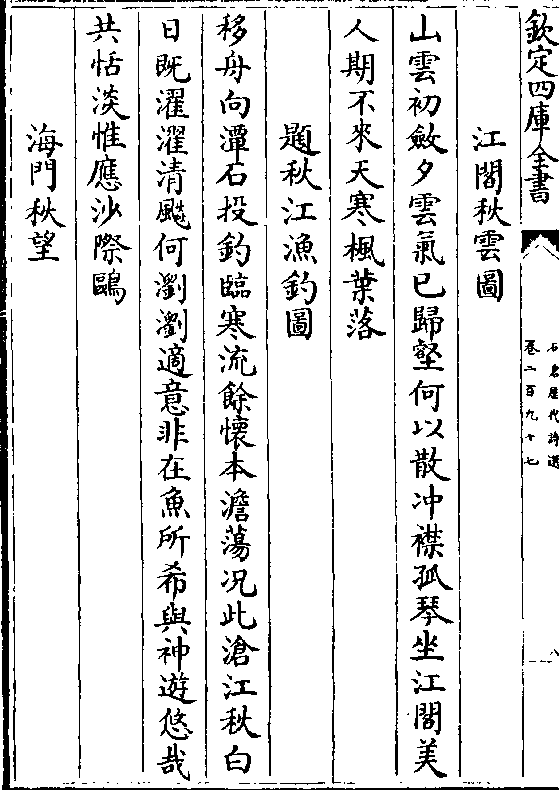 欽定四庫全書
石倉歷代詩選
卷二百九十七
八
江閣秋雲圖
山雲初斂夕雲氣已歸壑何以散冲襟孤琴坐江閣美
人期不來天寒楓葉落
題秋江漁釣圖
移舟向潭石投釣臨寒流餘懷本澹蕩况此滄江秋白
日既濯濯清飈何瀏瀏適意非在魚所希與神遊悠哉
共恬淡惟應沙際鷗
海門秋望